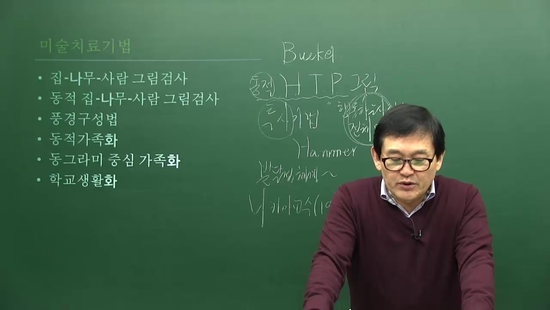 미술치료기법
• 집-나무-사람 그림검사
• 동적 집-나무-사람 그림검사
• 풍경구성법
• 동적가족화
• 동그라미 중심 가족화
• 학교생활화
동적 HTP 그림
기법
Hammer